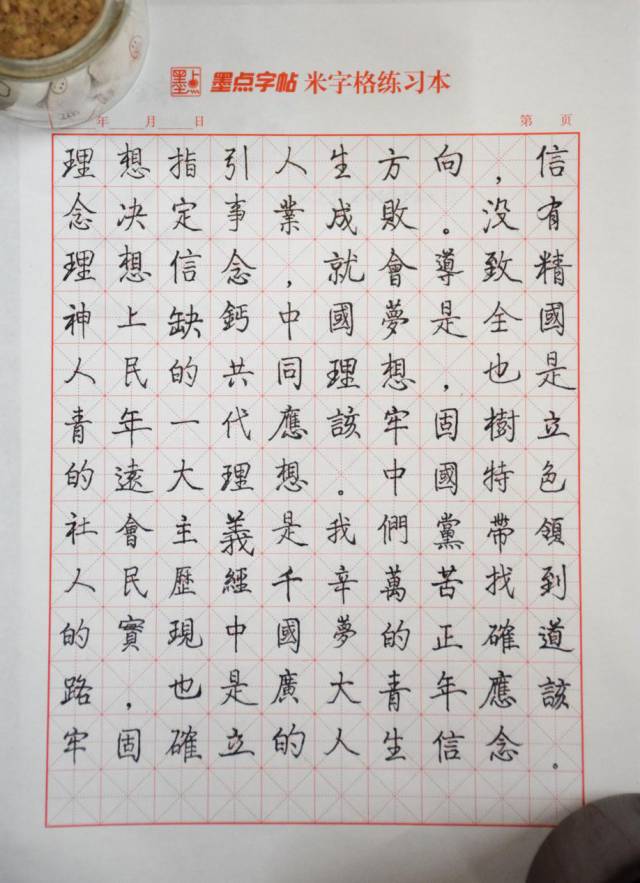 墨点 墨点字帖 米字格练习本
年 月 日 第 页
理想指引人生方向，信
念决定事業成敗。没有
理想信念，就會導致精
神上缺鈣中國夢是全國
人民的共同理想，也是
青年一代應該牢固樹立
的遠大理想。中國特色
社會主義是我們黨帶領
人民歷經千辛萬苦找到
的實現中國夢的正確道
路，也是廣大青年應該
牢固確立的人生信念。